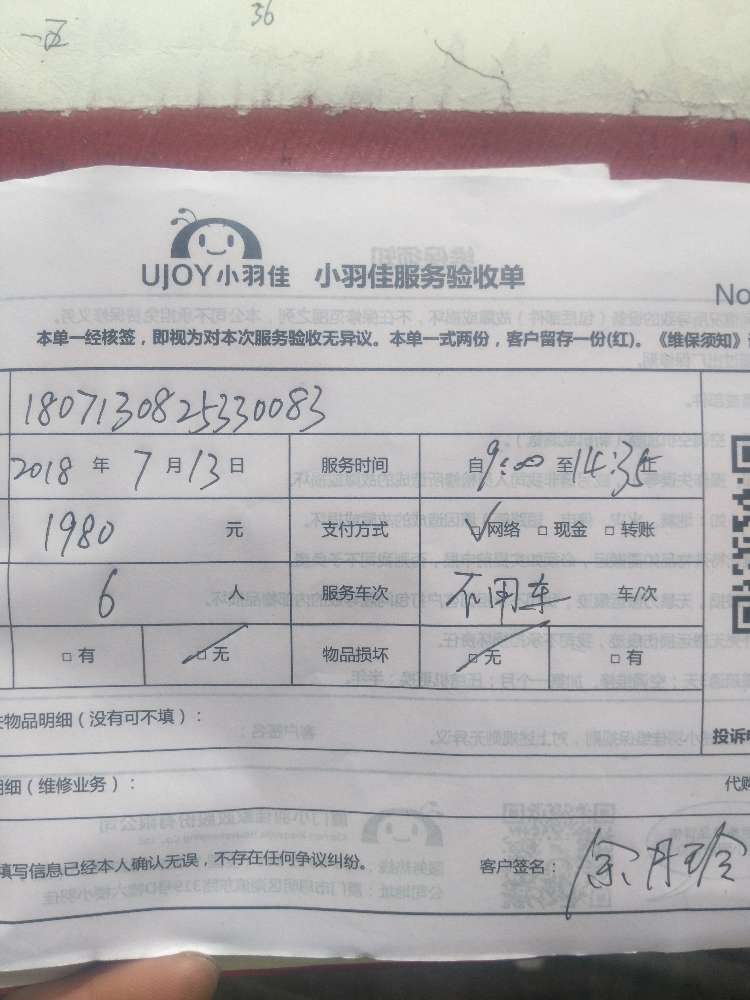 36
一改
UJOY小羽佳 小羽佳服务验收单
No
本单一经核签，即视为对本次服务验收无异议。本单一式两份，客户留存一份(红)。《维保须知》
1807130825330083
2018 年 7 月 13 日 服务时间 自 9:00 至 14:35 止
1980 元 支付方式 ☑网络 □现金 □转账
6 人 服务车次 不用车 车/次
□有 ☑无 物品损坏 ☑无 □有
物品明细（没有可不填）：
投诉
细（维修业务）：
代购
填写信息已经本人确认无误，不存在任何争议纠纷。 客户签名：余月珍